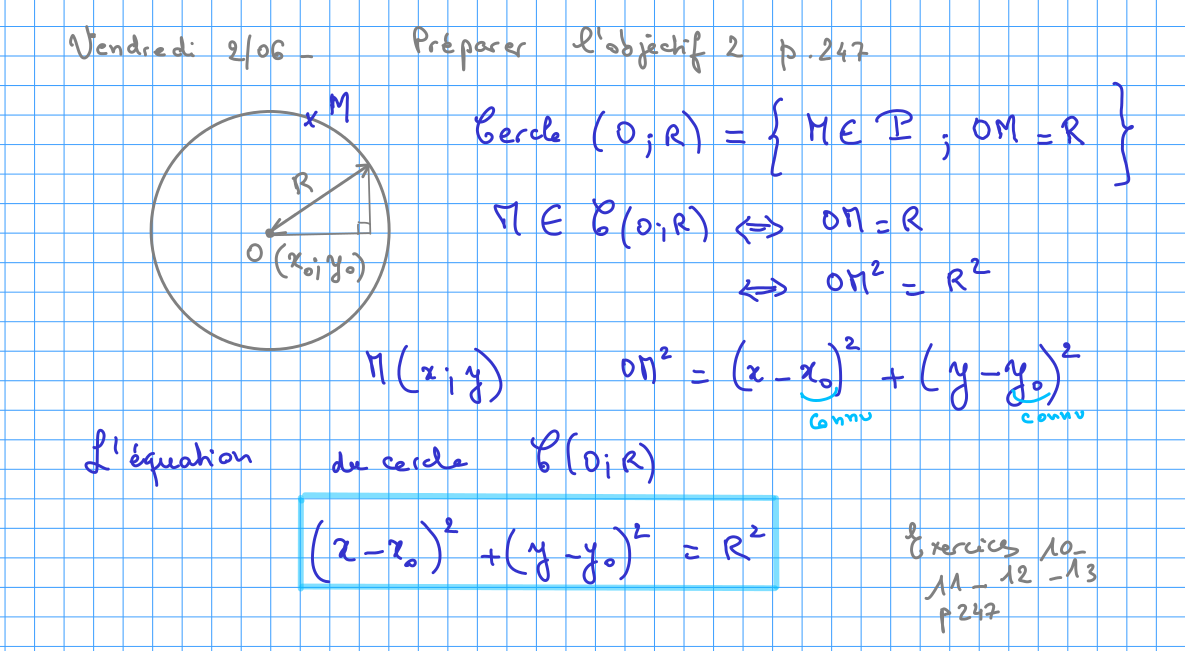 Vendredi 2/06 - Préparer l'objectif 2 p.247
M
Cercle (O;R) = { M ∈ P ; OM = R }
R
M ∈ C(O;R) ⇔ OM = R
O (x₀;y₀)
⇔ OM² = R²
M(x;y) OM² = (x-x₀)² + (y-y₀)²
connu connu
L'équation du cercle C(O;R)
(x-x₀)² + (y-y₀)² = R²
Exercices 10-
11-12-13
p247